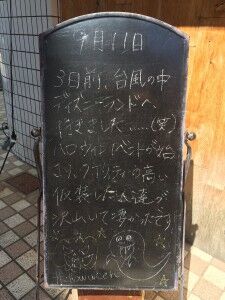 9月11日
3日前、台風の中
ディズニーランドへ
行きました……(笑)
ハロウィンイベントが始
まり、クオリティの高い
仮装した人達が
沢山いて凄かったです